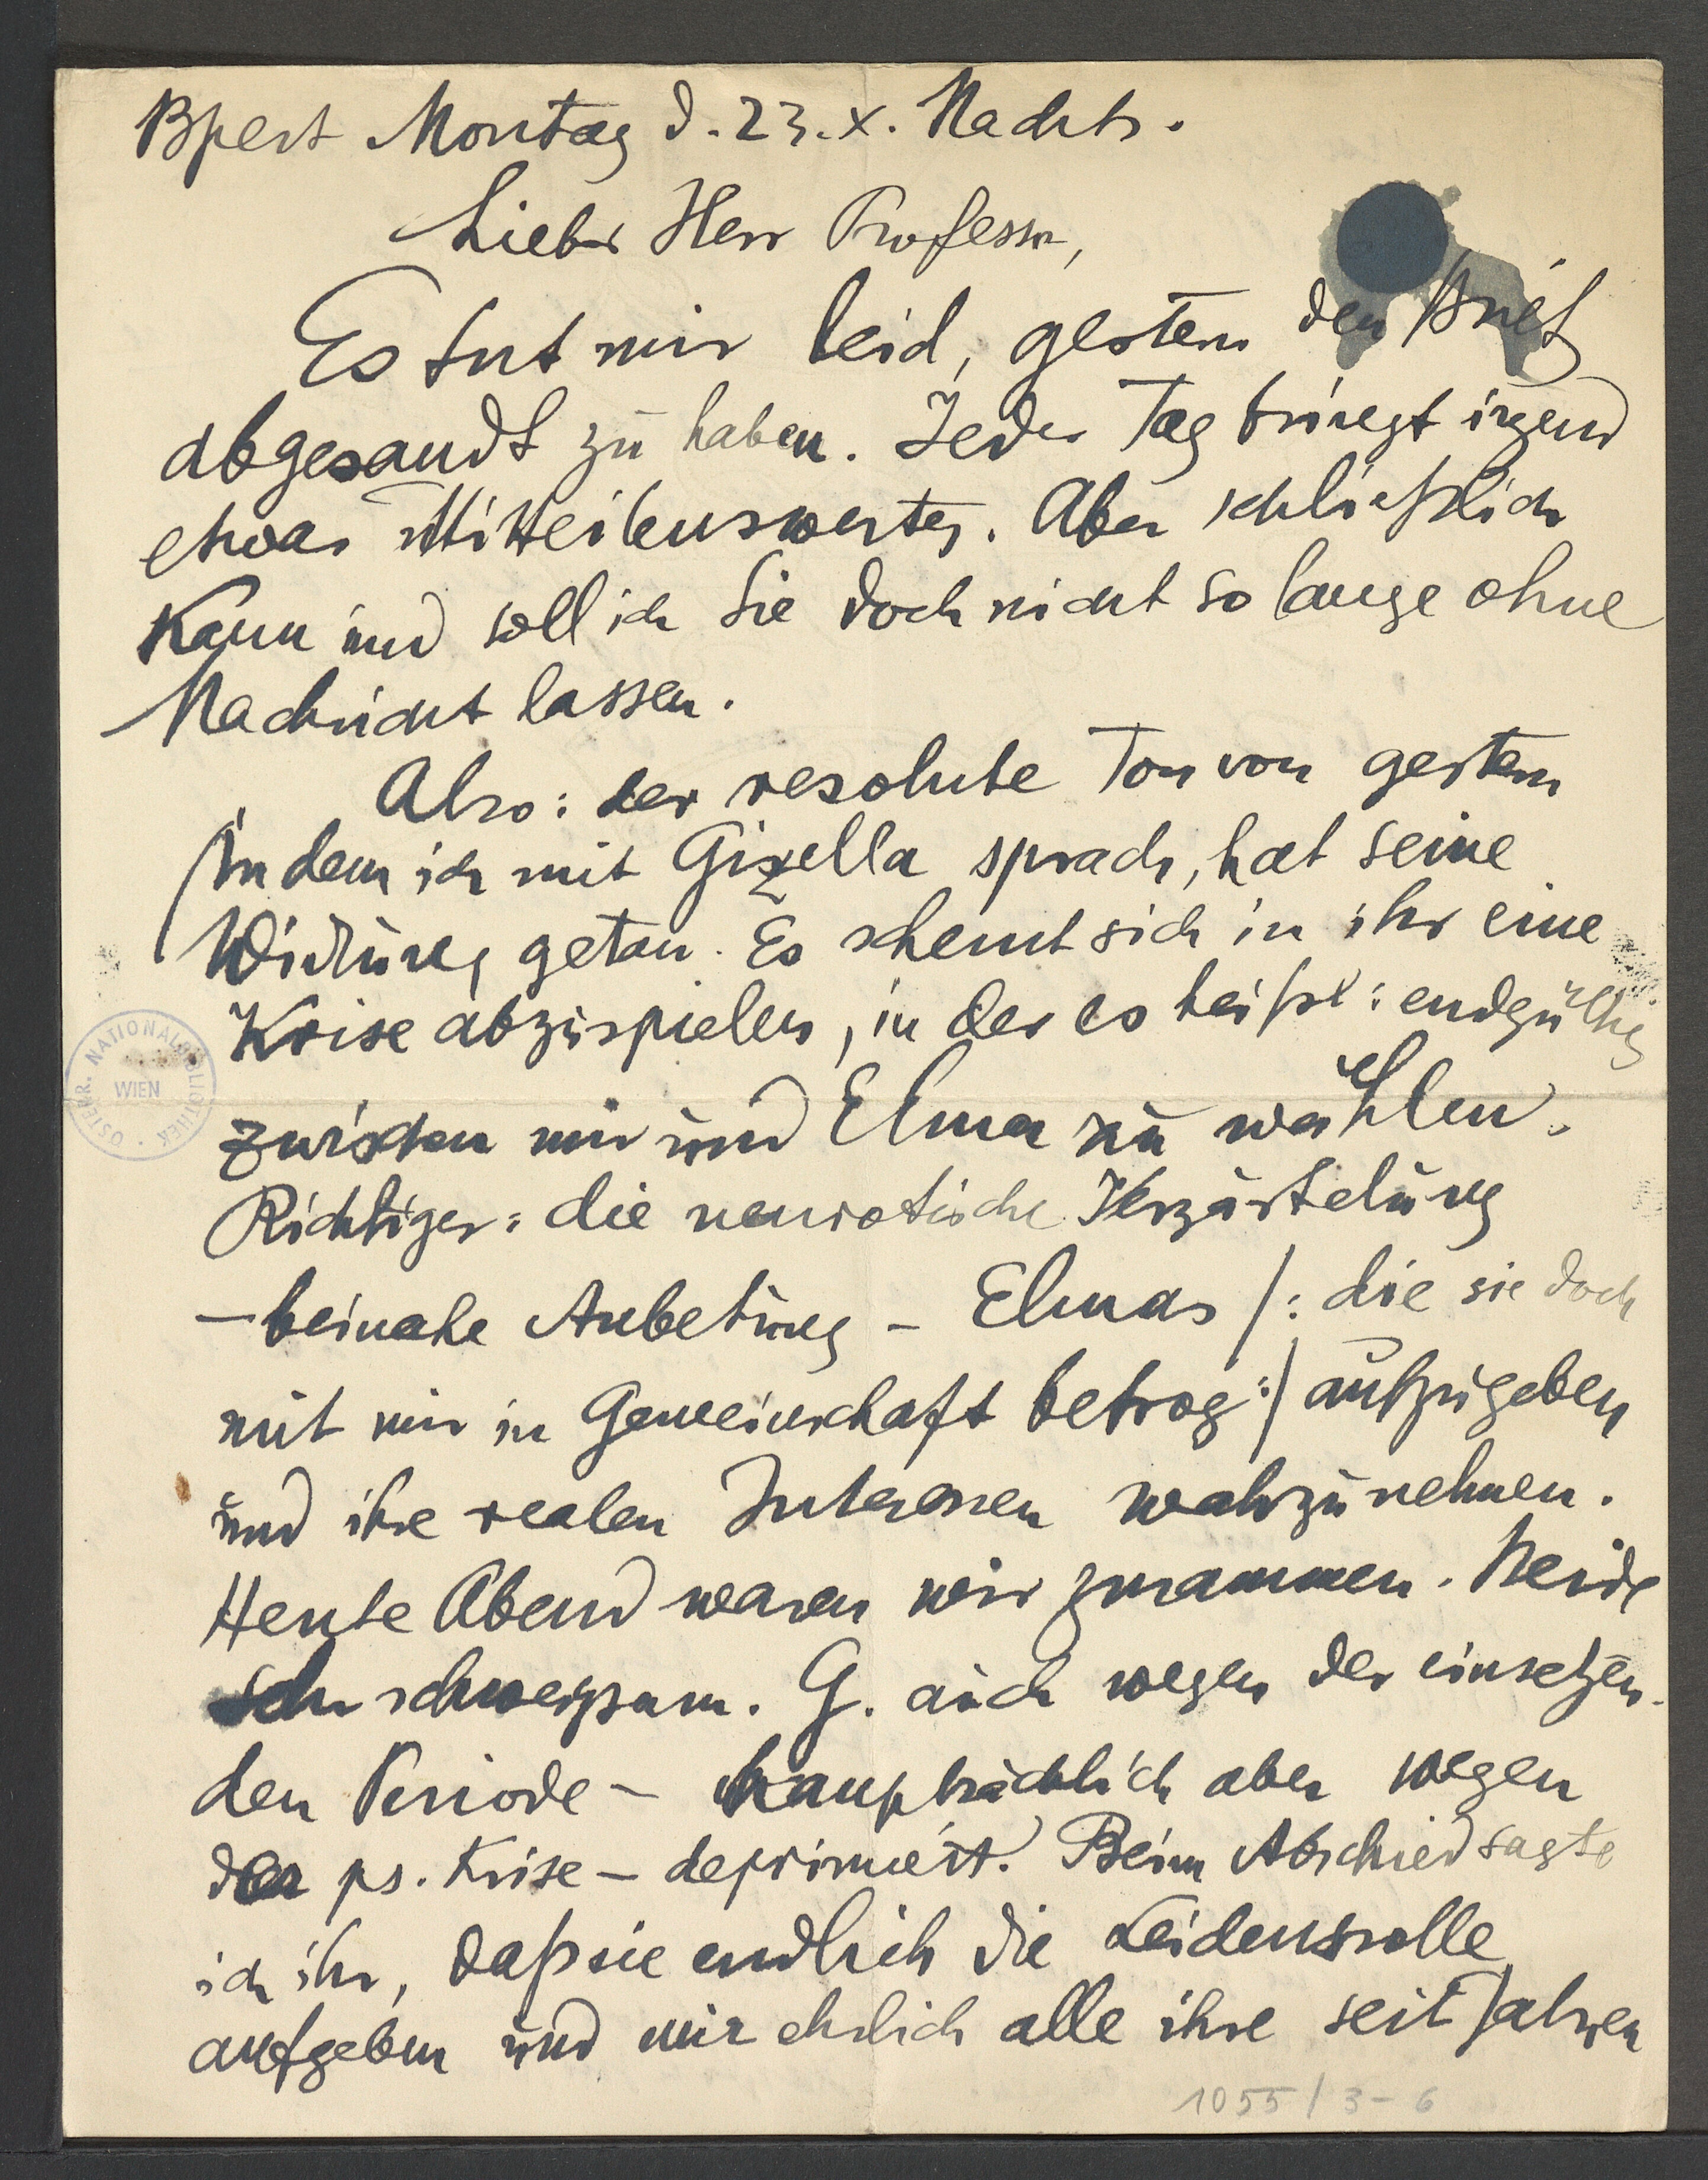 Bpest Montag d. 23. X. Nachts.
Lieber Herr Professor,
Es tut mir leid, gestern den Brief
abgesandt zu haben. Jeder Tag bringt irgend
etwas Mitteilenswertes. Aber schließlich
kann und soll ich Sie doch nicht so lange ohne
Nachricht lassen.
Also: der resolute Ton von gestern
in dem ich mit Gizella sprach, hat seine
Wirkung getan. Es scheint sich in ihr eine
Krise abzuspielen, in der es heißt: endgültig
zwischen mir und Elma zu wählen.
Richtiger: die neurotische Verzärtelung
– beinahe Anbetung – Elmas /: die sie doch
mit mir in Gemeinschaft betrog :/ aufzugeben
und ihre realen Interessen wahrzunehmen.
Heute Abend waren wir zusammen. Beide
sehr schweigsam. G. auch wegen der einsetzen-
den Periode – hauptsächlich aber wegen
der ps. Krise – deprimiert. Beim Abschied sagte
ich ihr, daß sie endlich die Leidensrolle
aufgeben und mir ehrlich alle ihre seit Jahren
1055/3-6
ÖSTERR. NATIONALBIBLIOTHEK
WIEN